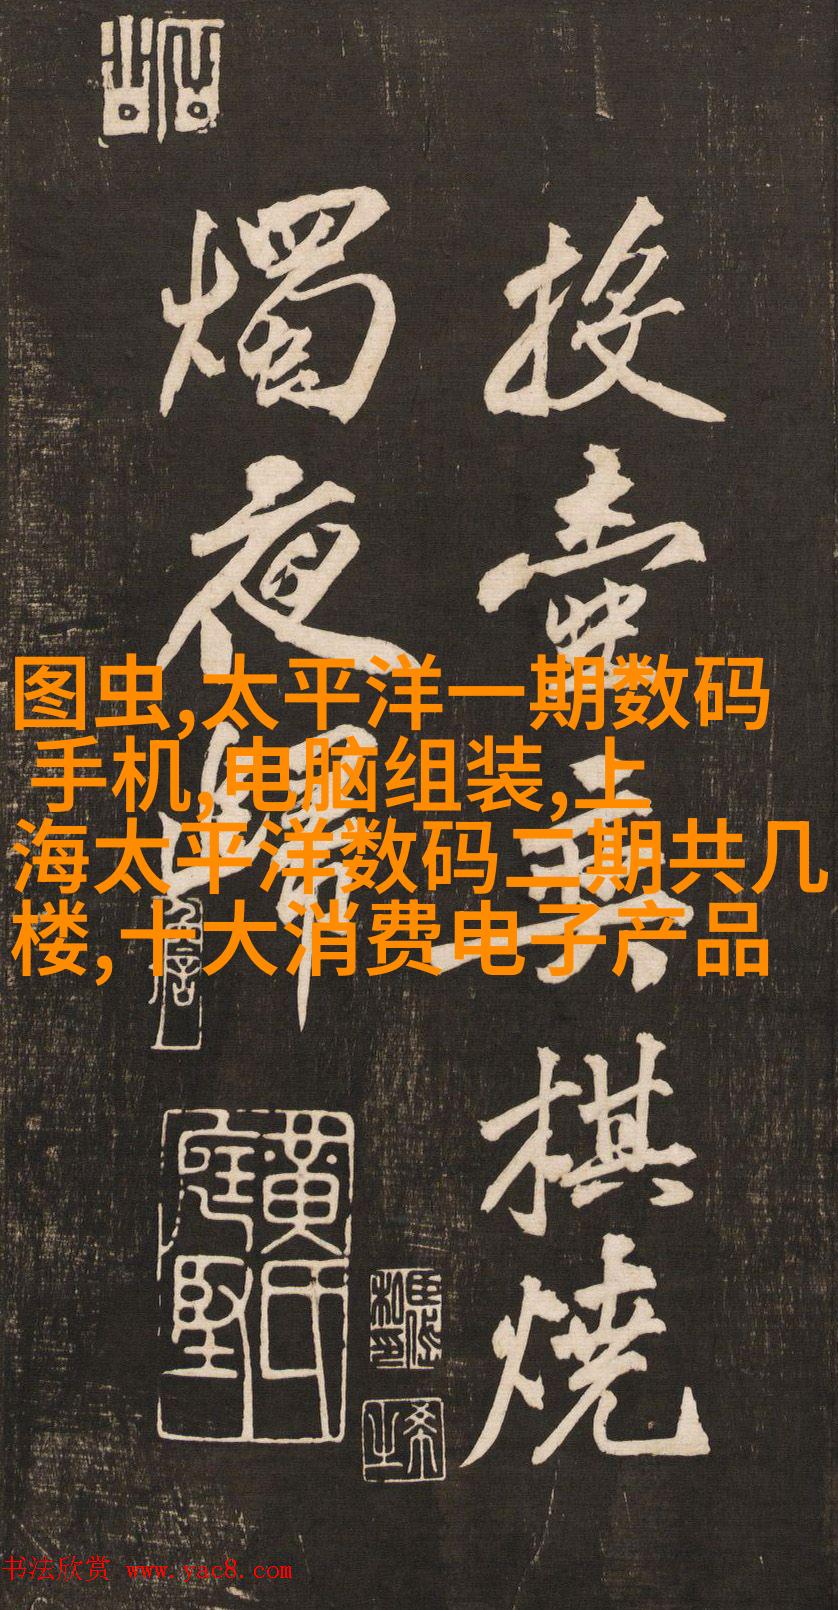 投壺奕棋燒
燭夜歸
图虫,太平洋一期数码
手机,电脑组装,上
海太平洋数码二期共几
楼,十大消费电子产品
黃氏
庭堅
书法欣赏 www.yac8.com